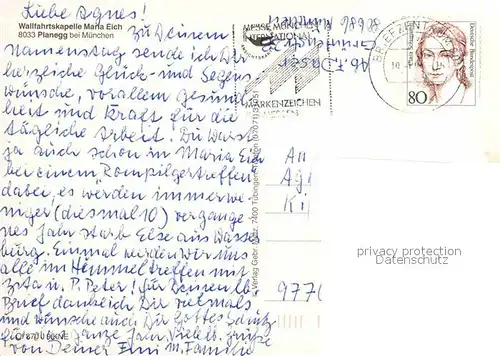 Liebe Agnes!
Wallfahrtskapelle Maria Eich
8033 Planegg bei München
Zu Deinem
Namenstag sende ich Dir
herzliche Glück- und Segens
wünsche, vor allem Gesund
heit und Kraft für die
tägliche Arbeit! Du warst
ja auch schon in Maria Eich
bei einem Rompilgertreffen
dabei, es werden immer we-
niger (diesmal 10) vergange
nes Jahr starb Else aus Wasser
burg. Einmal werden wir uns
alle im Himmel treffen mit
Zita u. P. Peter! Für Deinen lb.
Brief danke ich Dir vielmals
und wünsche auch Dir Gottes Schutz
ganze Jahr. Viele lb. Grüße
von Deiner Emi m. Familie
MESSE MÜNCHEN
INTERNATIONAL
MARKENZEICHEN
BRIEFZENTRUM
80
Deutsche Bundespost
Verlag Gebr. Metz, 7400 Tübingen, Telefon (07071)
An
Ag
Ki
977
privacy protection
Datenschutz